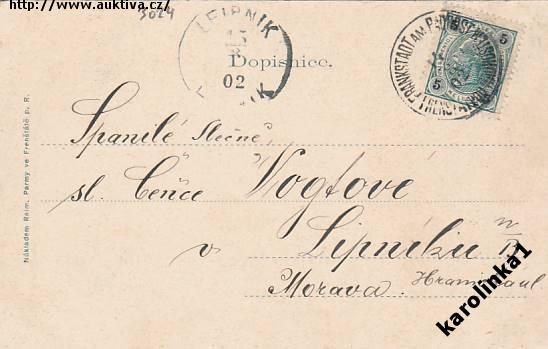 http://www.auktiva.cz/
3024
LEIPNIK
02
Dopisnice.
FRANKSTADT AM
5 5
Spanilé Slečně
sl. Čeňce Vogtové
v Lipníku n/B
Morava.
Nákladem Reim. Parmy ve Frenštátě p. R.
karolinka1